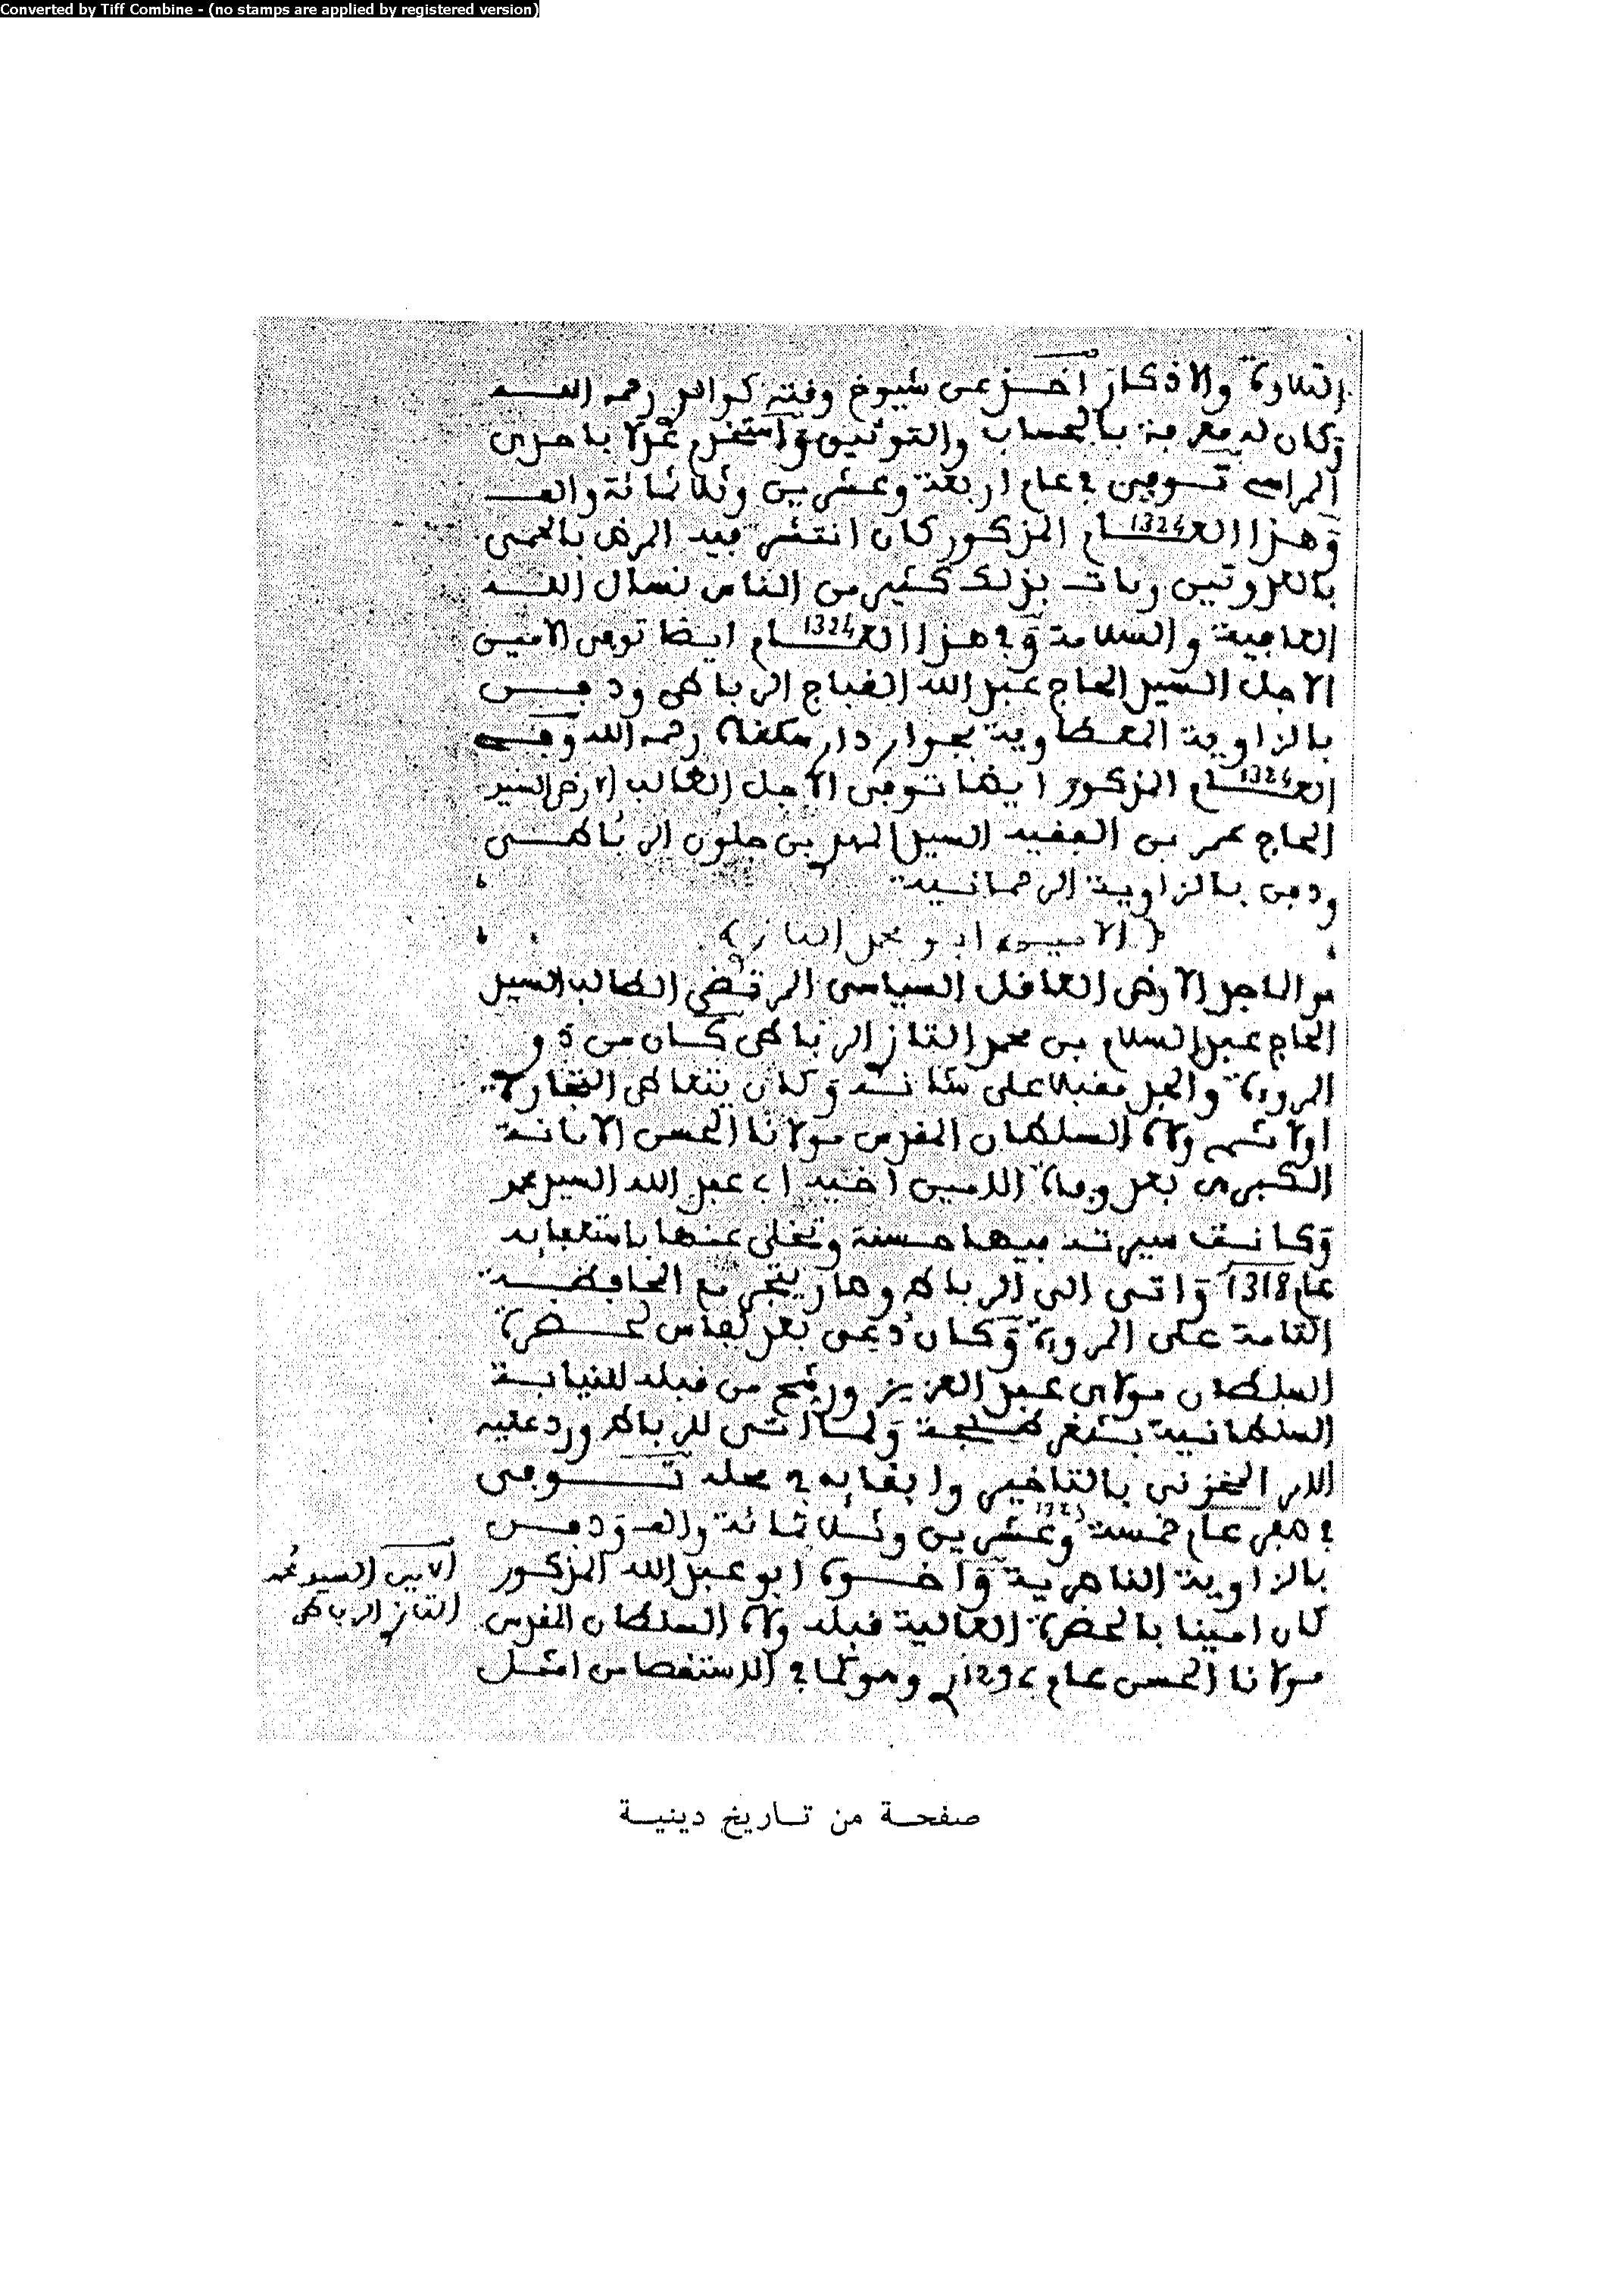 Converted by Tiff Combine - (no stamps are applied by registered version)
التلاوة والاذكار أخذ عن شيوخ وقته كوالده رحمه الله
وكان له معرفة بالحساب والتوثيق واستخدم عدلا باحدى
المراسي توفي في عام اربعة وعشرين وثلاثمائة والف
وهذا العام 1324 المذكور كان انتشر فيه المرض بالحمى
بالعدوتين ومات بذلك كثير من الناس نسأل الله
العافية والسلامة وفي هذا العام 1324 ايضا توفي الامين
الاجل السيد الحاج عبد الله القباج الرباطي ودفن
بالزاوية المعطاوية بجوار دار سكناه رحمه الله وفي
العام 1324 المذكور ايضا توفي الاجل الطالب الارضى السيد
الحاج عمر بن الفقيه السيد المهدي بن جلون الرباطي
ودفن بالزاوية الرحمانية
(الامين ابو محمد التازي)
هو الماجد الارضى العاقل السياسي المرتضى الطالب السيد
الحاج عبد السلام بن محمد التازي الرباطي كان من ذوي
المروءة والجد مقبلا على شأنه وكان يتعاطى التجارة
اولا ثم ولاه السلطان المقدس مولانا الحسن الامانة
الكبرى بعد وفاة الامين أخيه أبي عبد الله السيد محمد
وكانت سيرته فيها حسنة وتخلى عنها باستعفائه
عام 1318 واتى الى الرباط وصار يتجر مع المحافظة
التامة على المروءة وكان دعي بعد لفاس لحضرة
السلطان مولاي عبد العزيز ورشح من قبله للنيابة
السلطانية بثغر طنجة ولما اتى للرباط ورد عليه
الامر المخزني بالتاخير وابقائه في محله توفي
في صفر عام خمسة وعشرين وثلاثمائة والف ودفن
بالزاوية الناصرية وأخوه ابو عبد الله المذكور
كان امينا بالحضرة العالية قبله ولاه السلطان المقدس
مولانا الحسن عام وهو كما في الاستقصا من امثل
الامين السيد محمد
التازي الرباطي
صفحـة من تـاريخ دينيـة